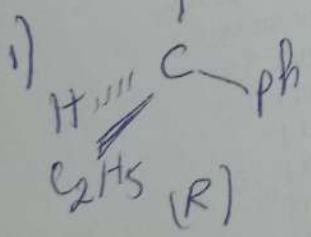 1)
C
H
Ph
C2H5
(R)